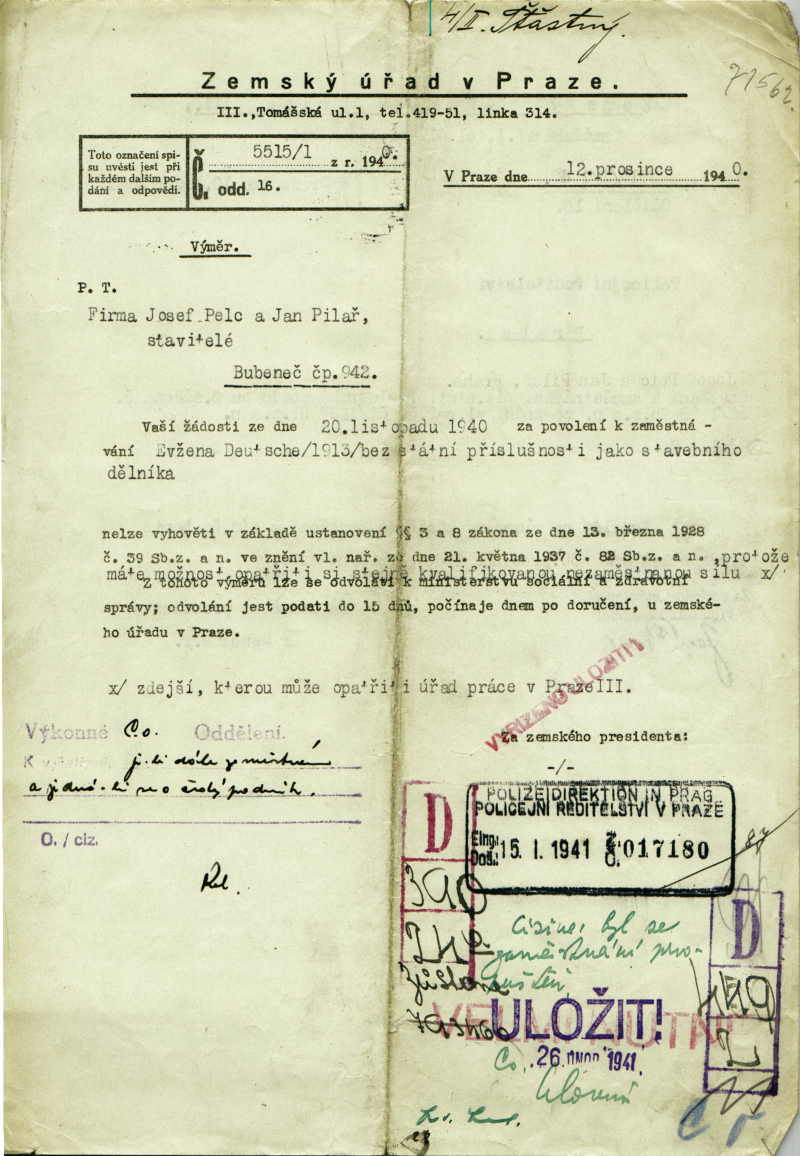 4/II. Šťastný.
71562
Zemský úřad v Praze.
III.,Tomášská ul.1, tel.419-51, linka 314.
Toto označení spi-
su uvésti jest při
každém dalším po-
dání a odpovědi.
Č. 5515/1 z r. 1940.
odd. 16.
V Praze dne 12.prosince 1940.
Výměr.
P. T.
Firma Josef Pelc a Jan Pilař,
stavitelé
Bubeneč čp.942.
Vaší žádosti ze dne 20.listopadu 1940 za povolení k zaměstná -
vání Evžena Deutsche/1913/bez státní příslušnosti jako stavebního
dělníka
nelze vyhověti v základě ustanovení §§ 3 a 8 zákona ze dne 13. března 1928
č. 39 Sb.z. a n. ve znění vl. nař. ze dne 21. května 1937 č. 82 Sb.z. a n. ,protože
máte možnost opatřiti si stejně kvalifikovanou nezaměstnanou sílu x/
Z tohoto výměru lze se odvolati k ministerstvu sociální a zdravotní
správy; odvolání jest podati do 15 dnů, počínaje dnem po doručení, u zemské-
ho úřadu v Praze.
x/ zdejší, kterou může opatřiti úřad práce v Praze III.
VYŘÍZENO ULOŽITI!
Výkonné Co. Oddělení.
K
a jedná-li se o český podnik.
O. / ciz.
Za zemského presidenta:
-/-
POLIZEIDIREKTION IN PRAG
POLICEJNÍ ŘEDITELSTVÍ V PRAZE
Eing.:
Doš.: 15. I. 1941 Č. 017180
D
390
Cizinec byl ze
zaměstnání pro-
puštěn
D
449
2
ULOŽIT!
Co. 26. ÚNOR 1941.